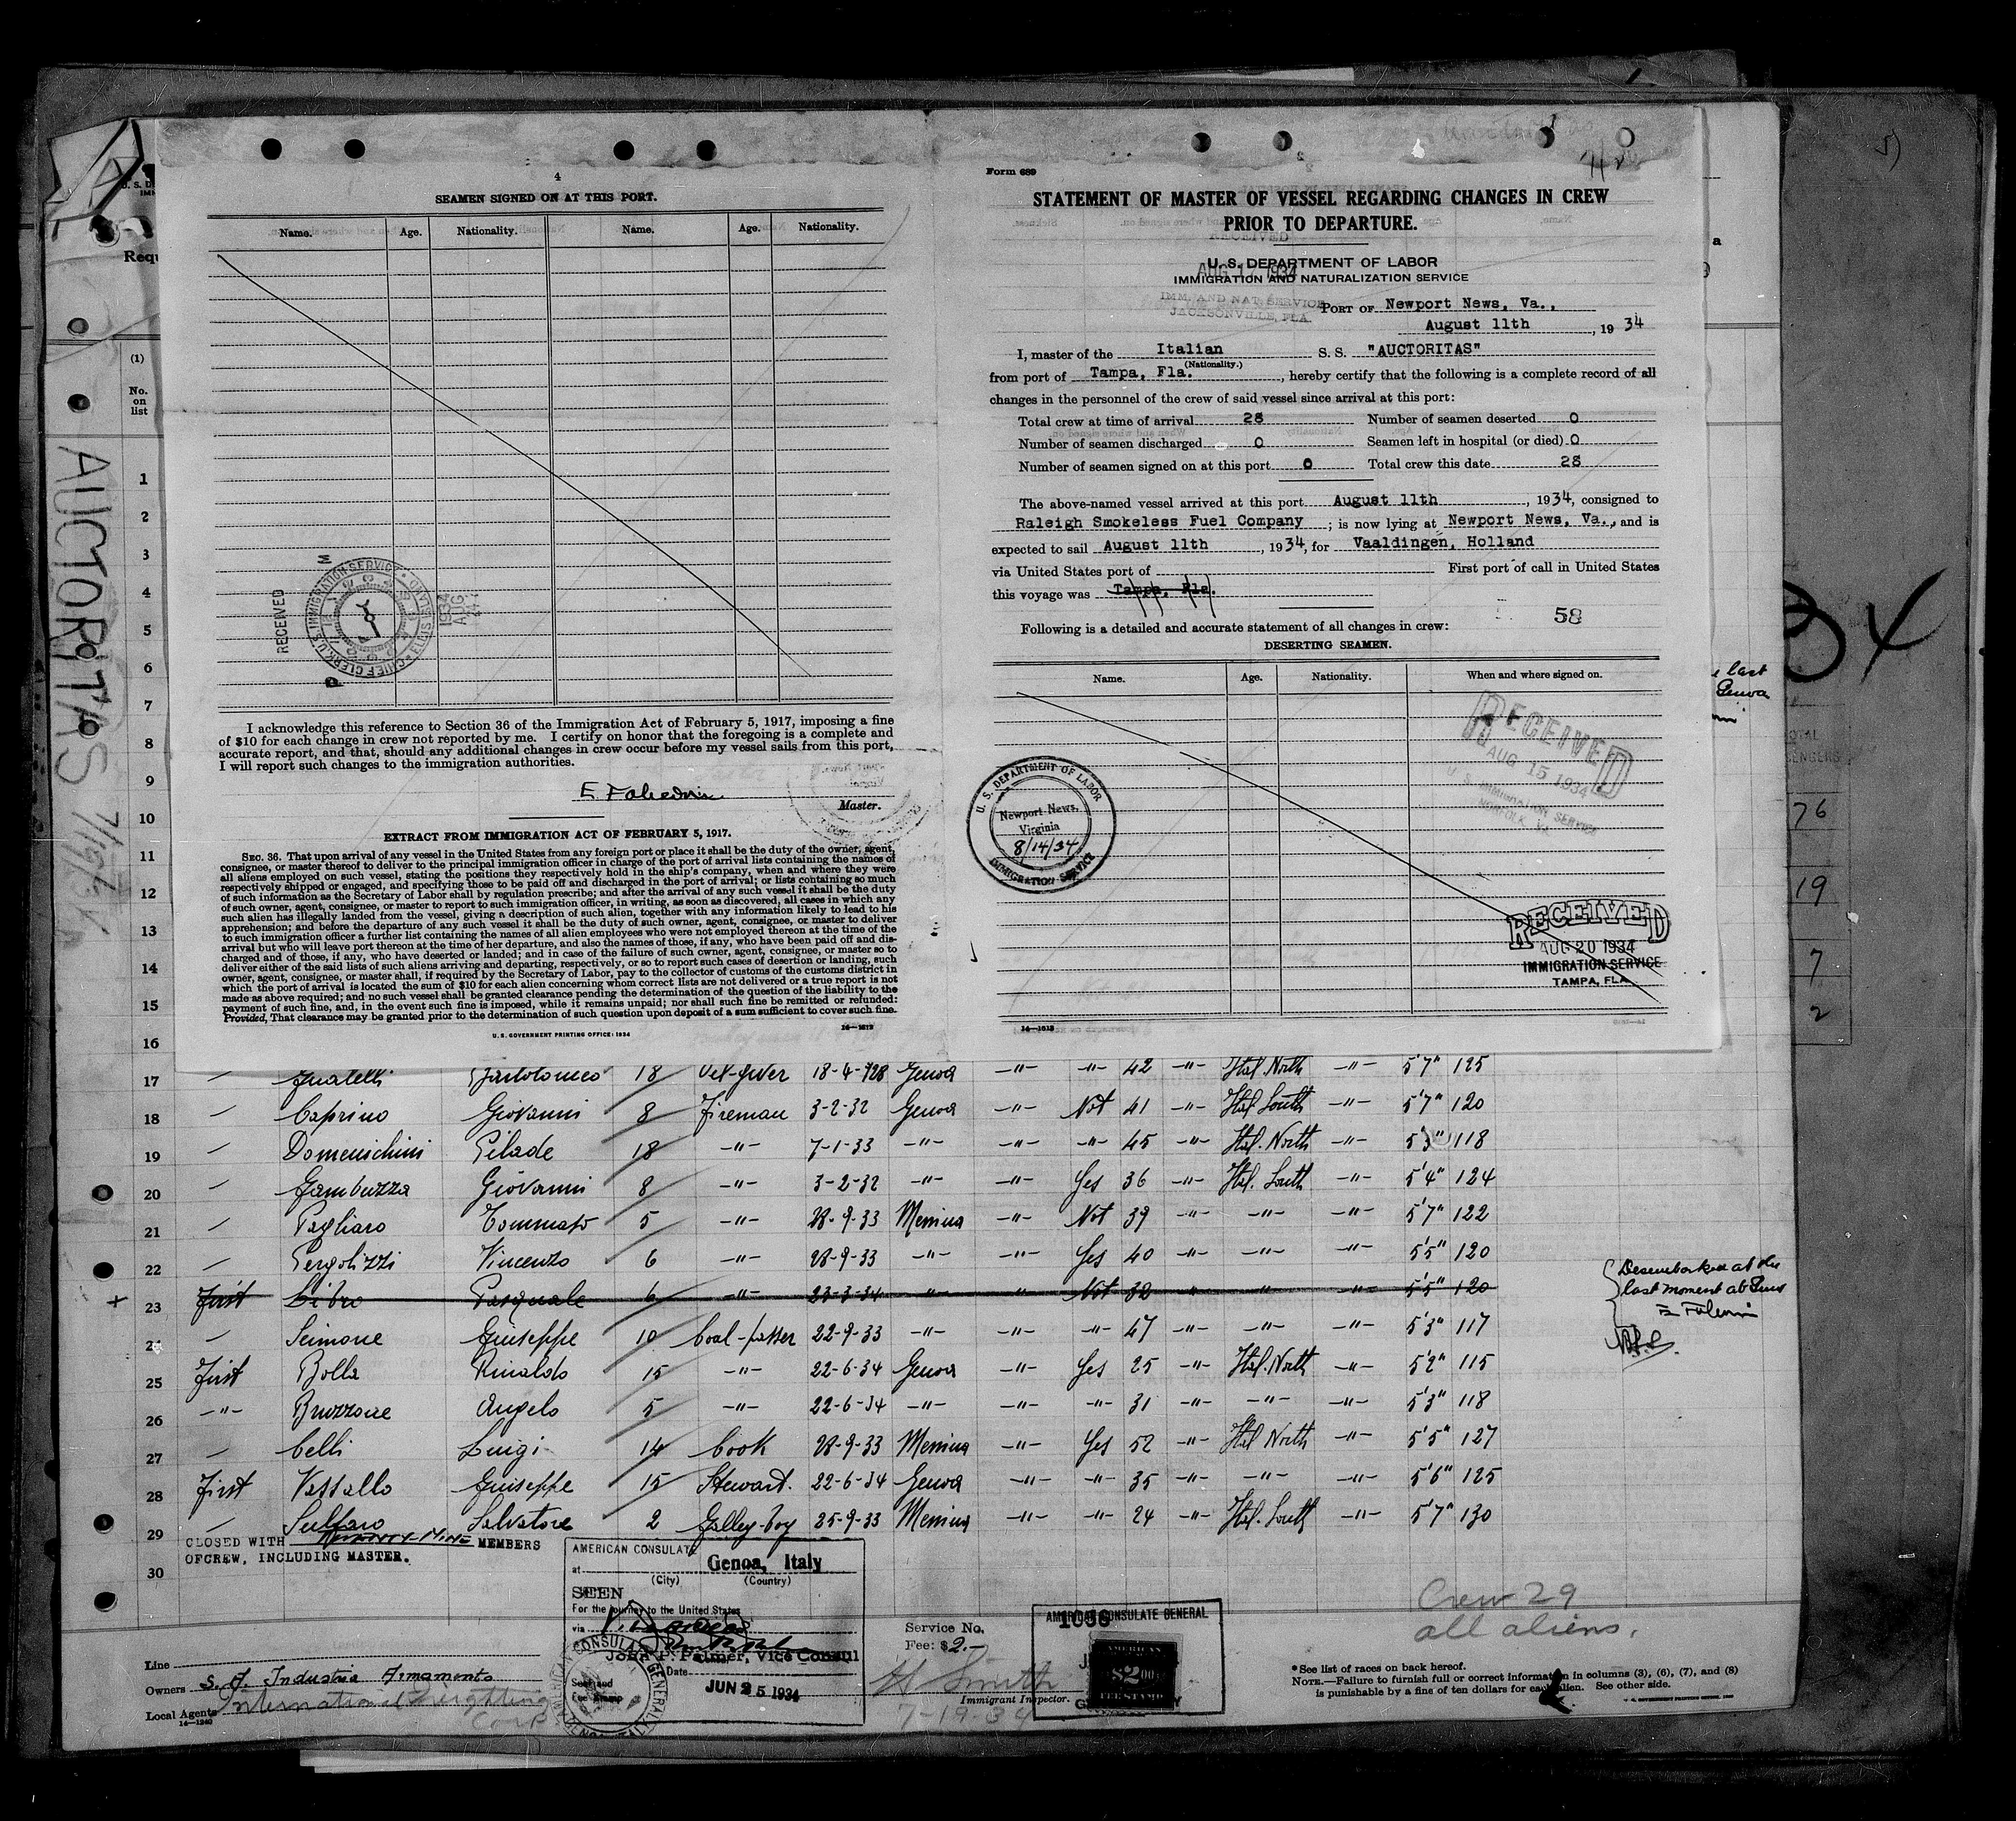 4
SEAMEN SIGNED ON AT THIS PORT.
Name. Age. Nationality. Name. Age. Nationality.
RECEIVED
U.S. IMMIGRATION SERVICE
CHIEF CLERK
1934
AUG
I acknowledge this reference to Section 36 of the Immigration Act of February 5, 1917, imposing a fine
of $10 for each change in crew not reported by me. I certify on honor that the foregoing is a complete and
accurate report, and that, should any additional changes in crew occur before my vessel sails from this port,
I will report such changes to the immigration authorities.
Master.
EXTRACT FROM IMMIGRATION ACT OF FEBRUARY 5, 1917.
SEC. 36. That upon arrival of any vessel in the United States from any foreign port or place it shall be the duty of the owner, agent,
consignee, or master thereof to deliver to the principal immigration officer in charge of the port of arrival lists containing the names of
all aliens employed on such vessel, stating the positions they respectively hold in the ship's company, when and where they were
respectively shipped or engaged, and specifying those to be paid off and discharged in the port of arrival; or lists containing so much
of such information as the Secretary of Labor shall by regulation prescribe; and after the arrival of any such vessel it shall be the duty
of such owner, agent, consignee, or master to report to such immigration officer, in writing, as soon as discovered, all cases in which any
such alien has illegally landed from the vessel, giving a description of such alien, together with any information likely to lead to his
apprehension; and before the departure of any such vessel it shall be the duty of such owner, agent, consignee, or master to deliver
to such immigration officer a further list containing the names of all alien employees who were not employed thereon at the time of the
arrival but who will leave port thereon at the time of her departure, and also the names of those, if any, who have been paid off and dis-
charged and of those, if any, who have deserted or landed; and in case of the failure of such owner, agent, consignee, or master so to
deliver either of the said lists of such aliens arriving and departing, respectively, or so to report such cases of desertion or landing, such
owner, agent, consignee, or master shall, if required by the Secretary of Labor, pay to the collector of customs of the customs district in
which the port of arrival is located the sum of $10 for each alien concerning whom correct lists are not delivered or a true report is not
made as above required; and no such vessel shall be granted clearance pending the determination of the question of the liability to the
payment of such fine, and, in the event such fine is imposed, while it remains unpaid; nor shall such fine be remitted or refunded:
Provided, That clearance may be granted prior to the determination of such question upon deposit of a sum sufficient to cover such fine.
U. S. GOVERNMENT PRINTING OFFICE: 1934
14—1613
Form 689
STATEMENT OF MASTER OF VESSEL REGARDING CHANGES IN CREW
PRIOR TO DEPARTURE.
RECEIVED
U. S. DEPARTMENT OF LABOR
AUG 17 1934
IMMIGRATION AND NATURALIZATION SERVICE
IMM. AND NAT. SERVICE
JACKSONVILLE, FLA.
PORT OF Newport News, Va.,
August 11th, 1934
I, master of the Italian S. S. "AUCTORITAS"
(Nationality.)
from port of Tampa, Fla., hereby certify that the following is a complete record of all
changes in the personnel of the crew of said vessel since arrival at this port:
Total crew at time of arrival 28 Number of seamen deserted 0
Number of seamen discharged 0 Seamen left in hospital (or died) 0
Number of seamen signed on at this port 0 Total crew this date 28
The above-named vessel arrived at this port August 11th, 1934, consigned to
Raleigh Smokeless Fuel Company; is now lying at Newport News, Va., and is
expected to sail August 11th, 1934, for Vaaldingen, Holland
via United States port of First port of call in United States
this voyage was Tampa, Fla.
58
Following is a detailed and accurate statement of all changes in crew:
DESERTING SEAMEN.
Name. Age. Nationality. When and where signed on.
RECEIVED
AUG 15 1934
U. S. IMMIGRATION SERVICE
NORFOLK, VA.
U. S. DEPARTMENT OF LABOR
Newport News,
Virginia
8/14/34
IMMIGRATION SERVICE
RECEIVED
AUG 20 1934
IMMIGRATION SERVICE
TAMPA, FLA.
14—1613
AUCTORITAS
(1)
No.
on
list
1
2
3
4
5
6
7
8
9
10
11
12
13
14
15
16
34
last
Genoa
76
19
7
2
17 18 18-4-928 Genoa -"- -"- 42 -"- Ital North -"- 5'7" 125
18 Caprino Giovanni 8 Fireman 3-2-32 Genoa -"- Not 41 -"- Ital South -"- 5'7" 120
19 Domenichini Pilade 18 -"- 7-1-33 -"- -"- -"- 45 -"- Ital. North -"- 5'3" 118
20 Gambuzza Giovanni 8 -"- 3-2-32 -"- -"- Yes 36 -"- Ital. South -"- 5'4" 124
21 Pagliaro Tommaso 5 -"- 28-9-33 Messina -"- Not 39 -"- -"- -"- 5'7" 122
22 Pergolizzi Vincenzo 6 -"- 28-9-33 -"- -"- Yes 40 -"- -"- -"- 5'5" 120
23 First Libro Pasquale 6 -"- 23-3-34 " " Not 32 " " " 5'5" 120
Desembarked at the
last moment
24 Scimone Giuseppe 10 Coal-passer 22-9-33 -"- -"- -"- 47 -"- -"- -"- 5'3" 117
25 First Bolla Rinaldo 15 -"- 22-6-34 Genoa -"- Yes 25 -"- Ital. North -"- 5'2" 115
26 -"- Bruzzone Angelo 5 -"- 22-6-34 -"- -"- -"- 31 -"- -"- -"- 5'3" 118
27 Celli Luigi 14 Cook 28-9-33 Messina -"- Yes 52 -"- Ital North -"- 5'5" 127
28 First Vassallo Giuseppe 15 Stewart. 22-6-34 Genoa -"- -"- 35 -"- -"- -"- 5'6" 125
29 Sulfaro Salvatore 2 Galley-boy 25-9-33 Messina -"- -"- 24 -"- Ital. South -"- 5'7" 130
CLOSED WITH Twenty-Nine MEMBERS
OF CREW, INCLUDING MASTER.
30
AMERICAN CONSULATE
at Genoa, Italy
(City) (Country)
SEEN
For the journey to the United States
via
John P. Palmer, Vice Consul
Date JUN 25 1934
Service No. 1036
Fee: $2.-
Immigrant Inspector.
7-19-34
AMERICAN CONSULATE GENERAL
AMERICAN
$2.00
FEE STAMP
Crew 29
all aliens.
Line
Owners S. A. Industria Armamento
Local Agents International Freighting
Corp
14—1240
*See list of races on back hereof.
NOTE.—Failure to furnish full or correct information in columns (3), (6), (7), and (8)
is punishable by a fine of ten dollars for each alien. See other side.